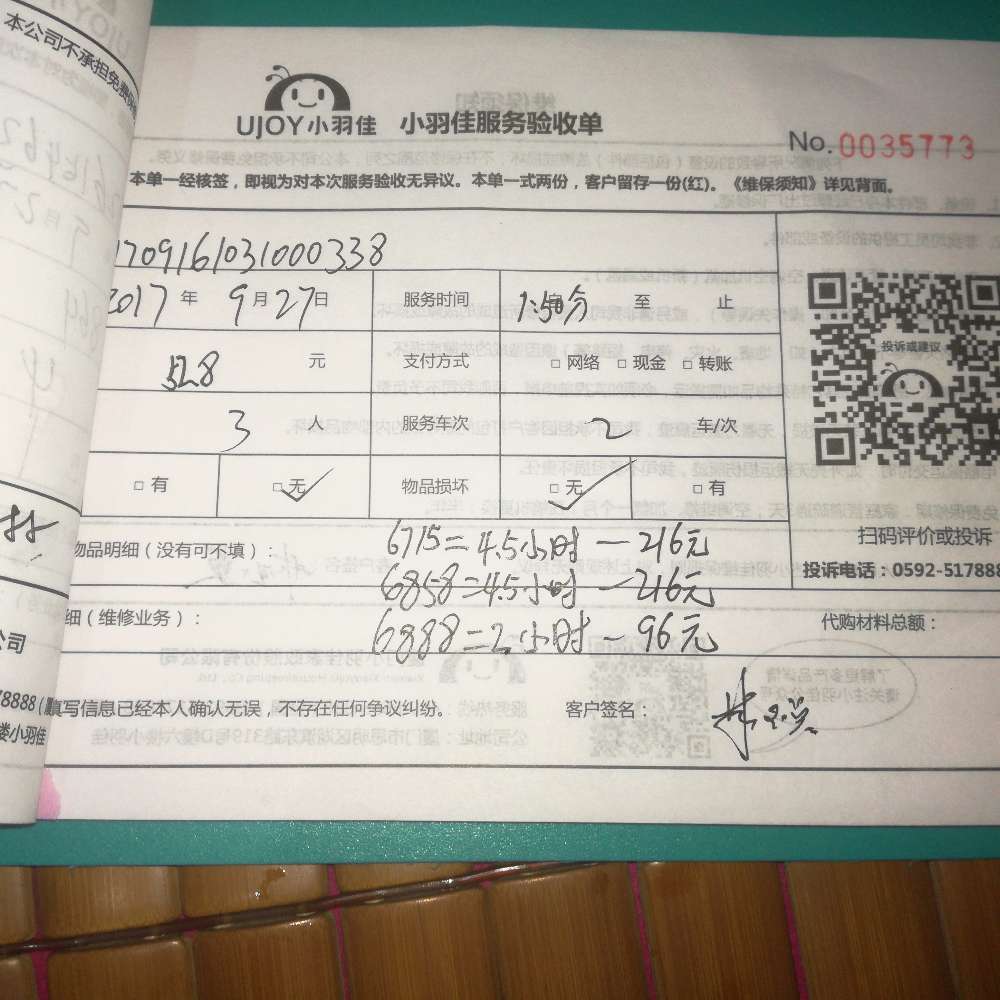 本公司不承担免费保
UJOY小羽佳 小羽佳服务验收单
No. 0035773
本单一经核签，即视为对本次服务验收无异议。本单一式两份，客户留存一份(红)。《维保须知》详见背面。
1709161031000338
2017 年 9 月 27 日 服务时间 1:50分 至 止
528 元 支付方式 □ 网络 □ 现金 □ 转账
3 人 服务车次 2 车/次
□ 有 □ 无 物品损坏 □ 无 □ 有
投诉或建议
扫码评价或投诉
投诉电话：0592-517888
物品明细（没有可不填）： 6715=4.5小时—216元
6858=4.5小时—216元
细（维修业务）： 6888=2小时—96元
代购材料总额：
填写信息已经本人确认无误，不存在任何争议纠纷。 客户签名：
公司
78888
楼小羽佳